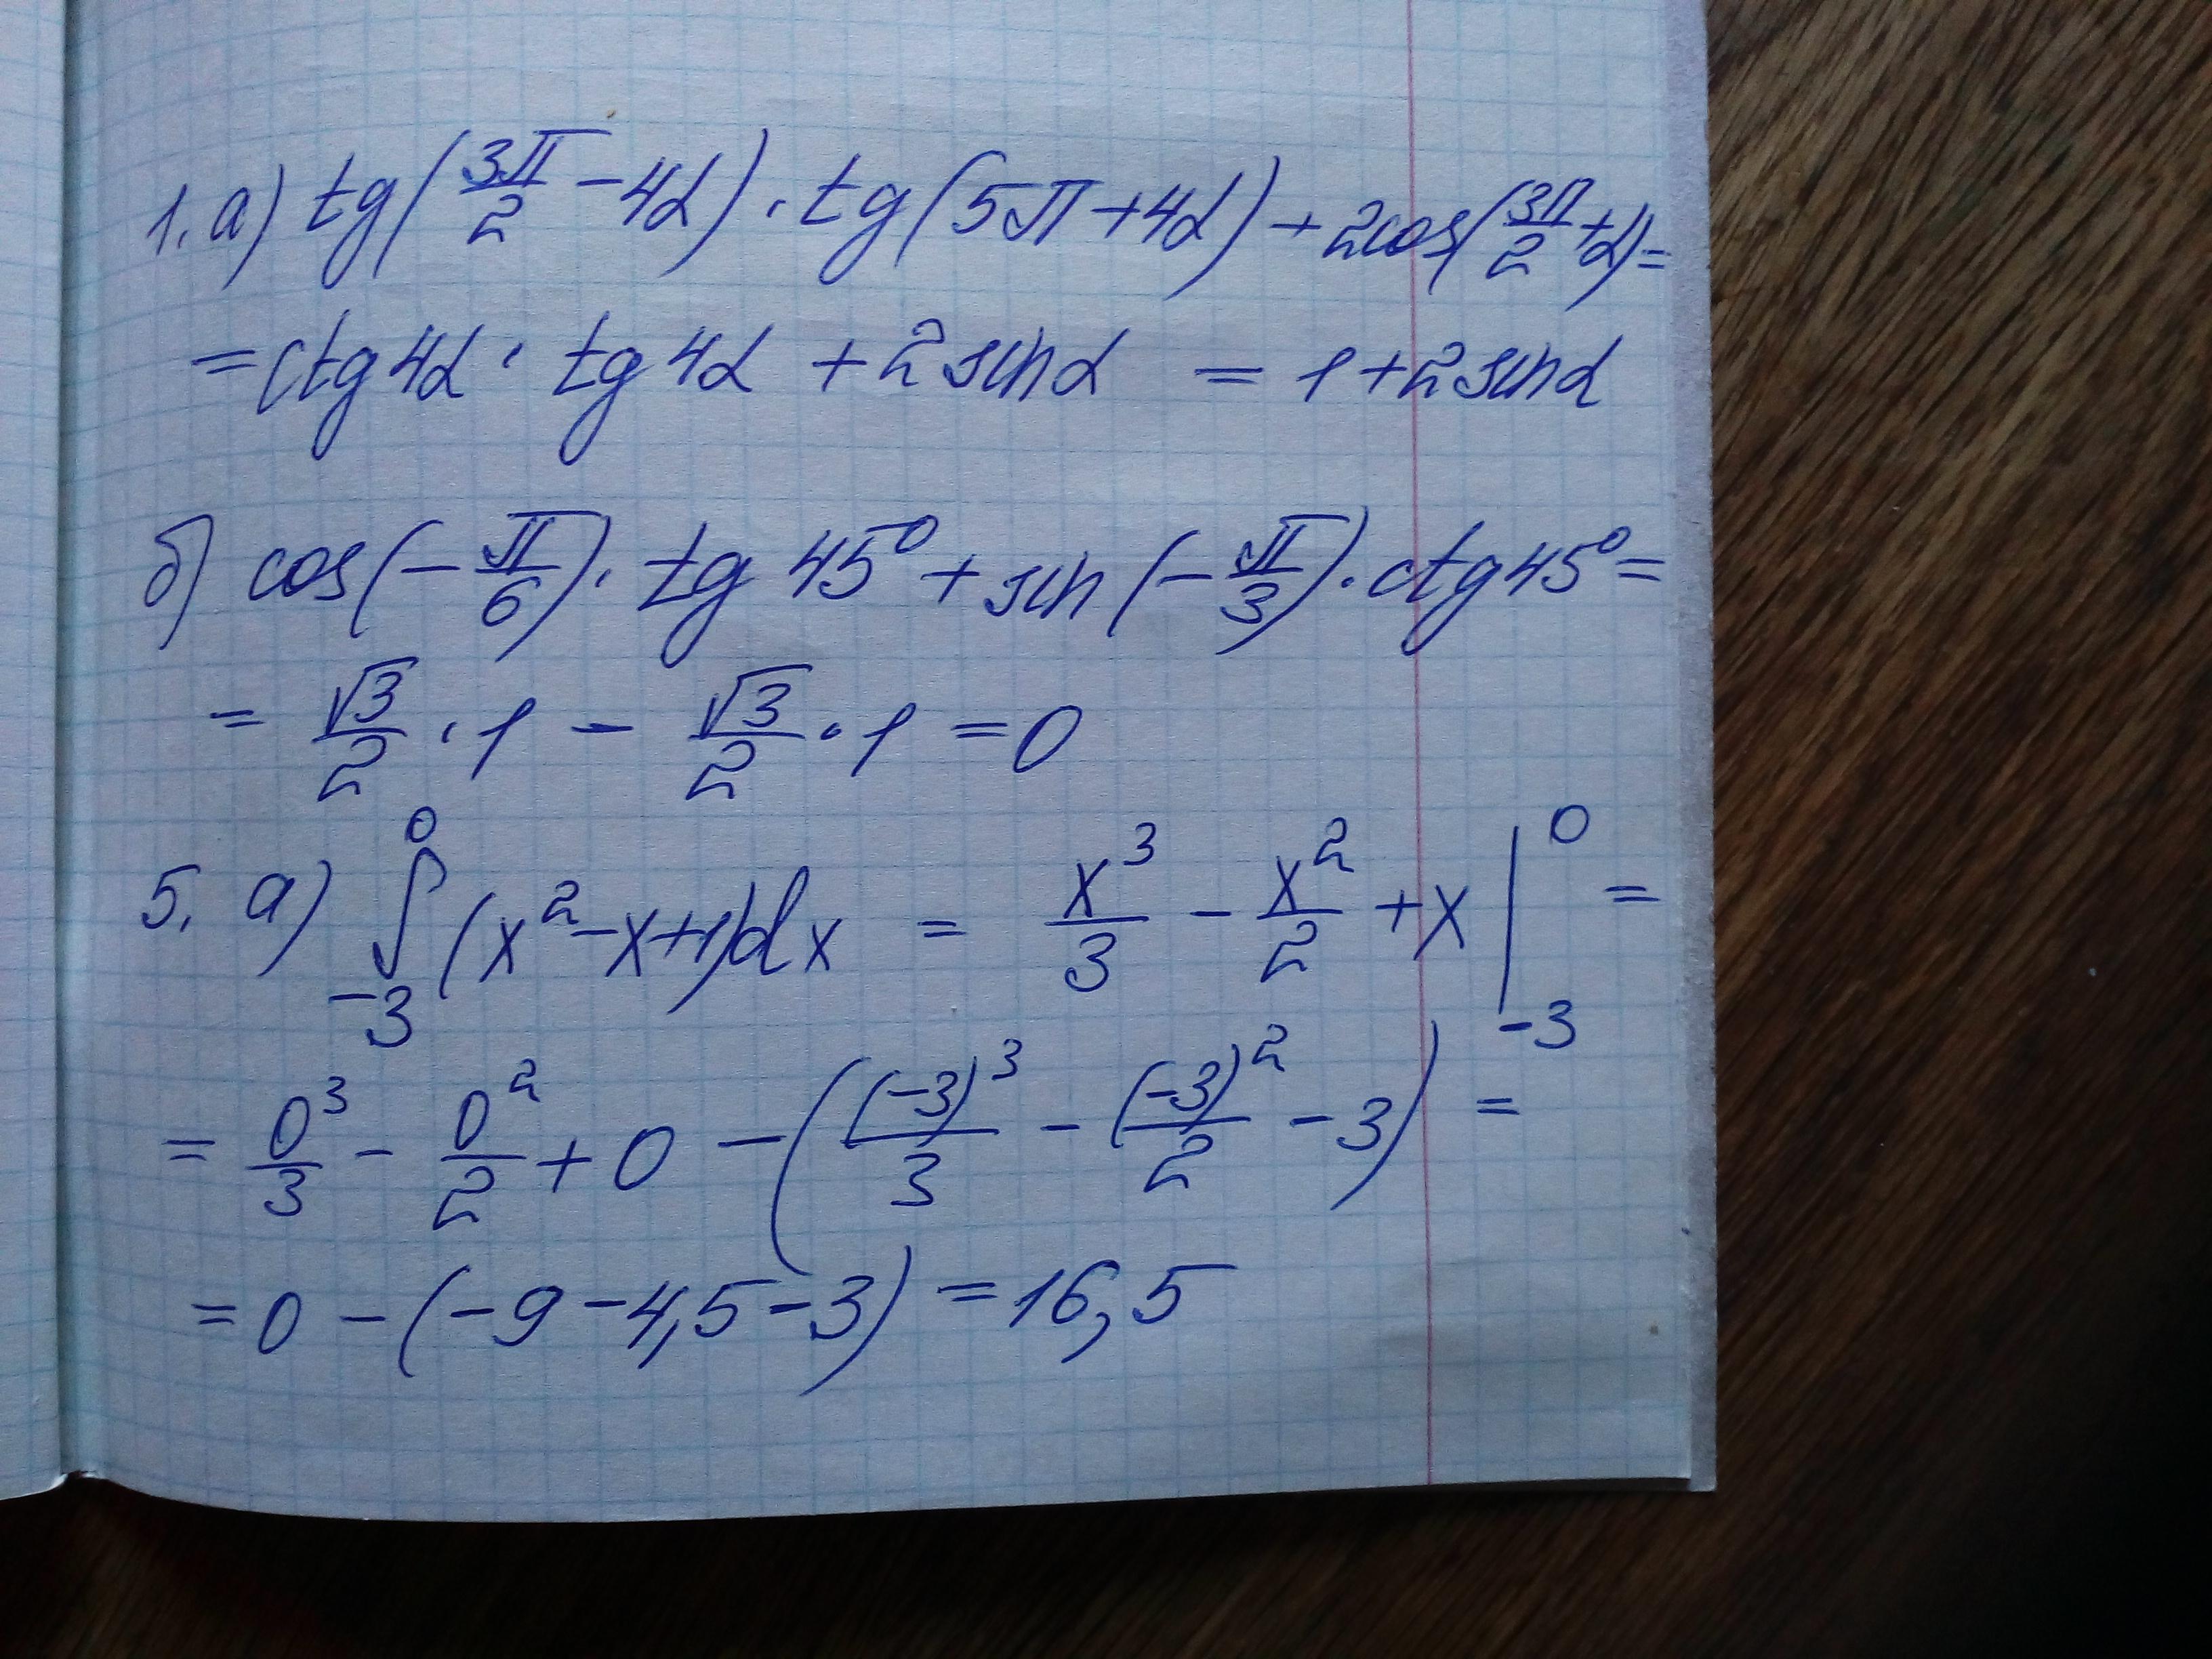 1. а) tg(3π/2 − 4α) · tg(5π + 4α) + 2cos(3π/2 + α) =
= ctg4α · tg4α + 2sinα = 1 + 2sinα
б) cos(−π/6) · tg 45° + sin(−π/3) · ctg45° =
= √3/2 · 1 − √3/2 · 1 = 0
5. а) ∫₋₃⁰ (x² − x + 1)dx = x³/3 − x²/2 + x |₋₃⁰ =
= 0³/3 − 0²/2 + 0 − ((−3)³/3 − (−3)²/2 − 3) =
= 0 − (−9 − 4,5 − 3) = 16,5